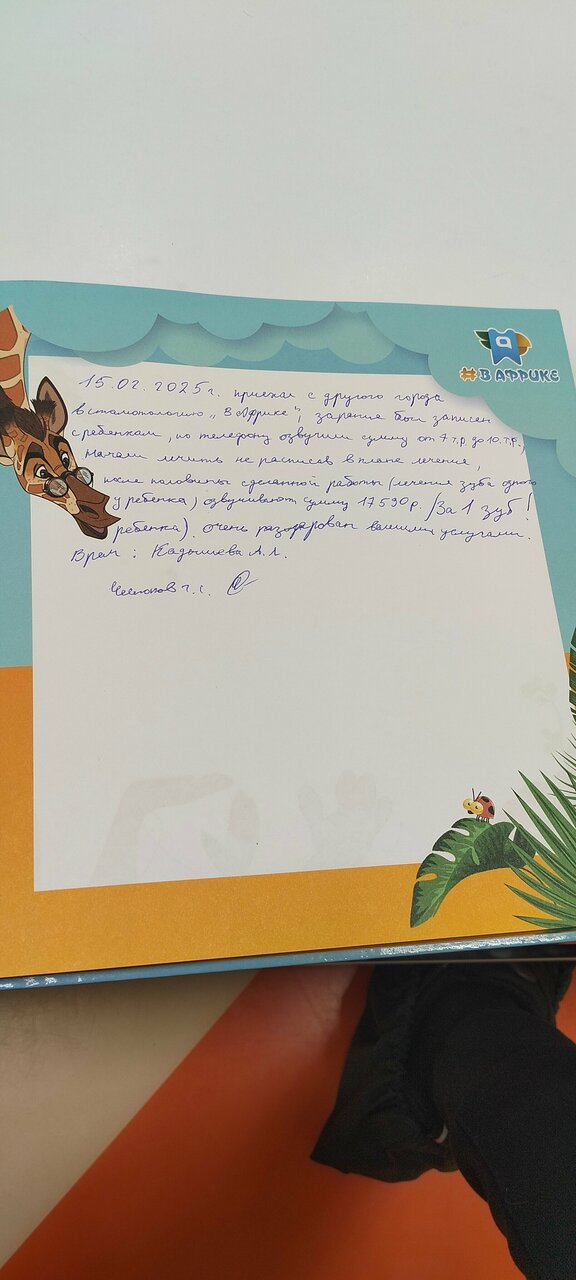 #В АФРИКЕ
15.02.2025г. приехал с другого города
в стамотологию "В Африке", заранее был записен
с ребенкам, по телефону озвучили сумму от 7 т.р до 10.т.р.,
Начали лечить не расписав в плане лечение,
после половины сделанной работы (лечения зуба одного
у ребенка) озвучивают сумму 17590р. /За 1 зуб!
ребенка). очень разочарован вашими услугами.
Врач: Кадышева А.Л.